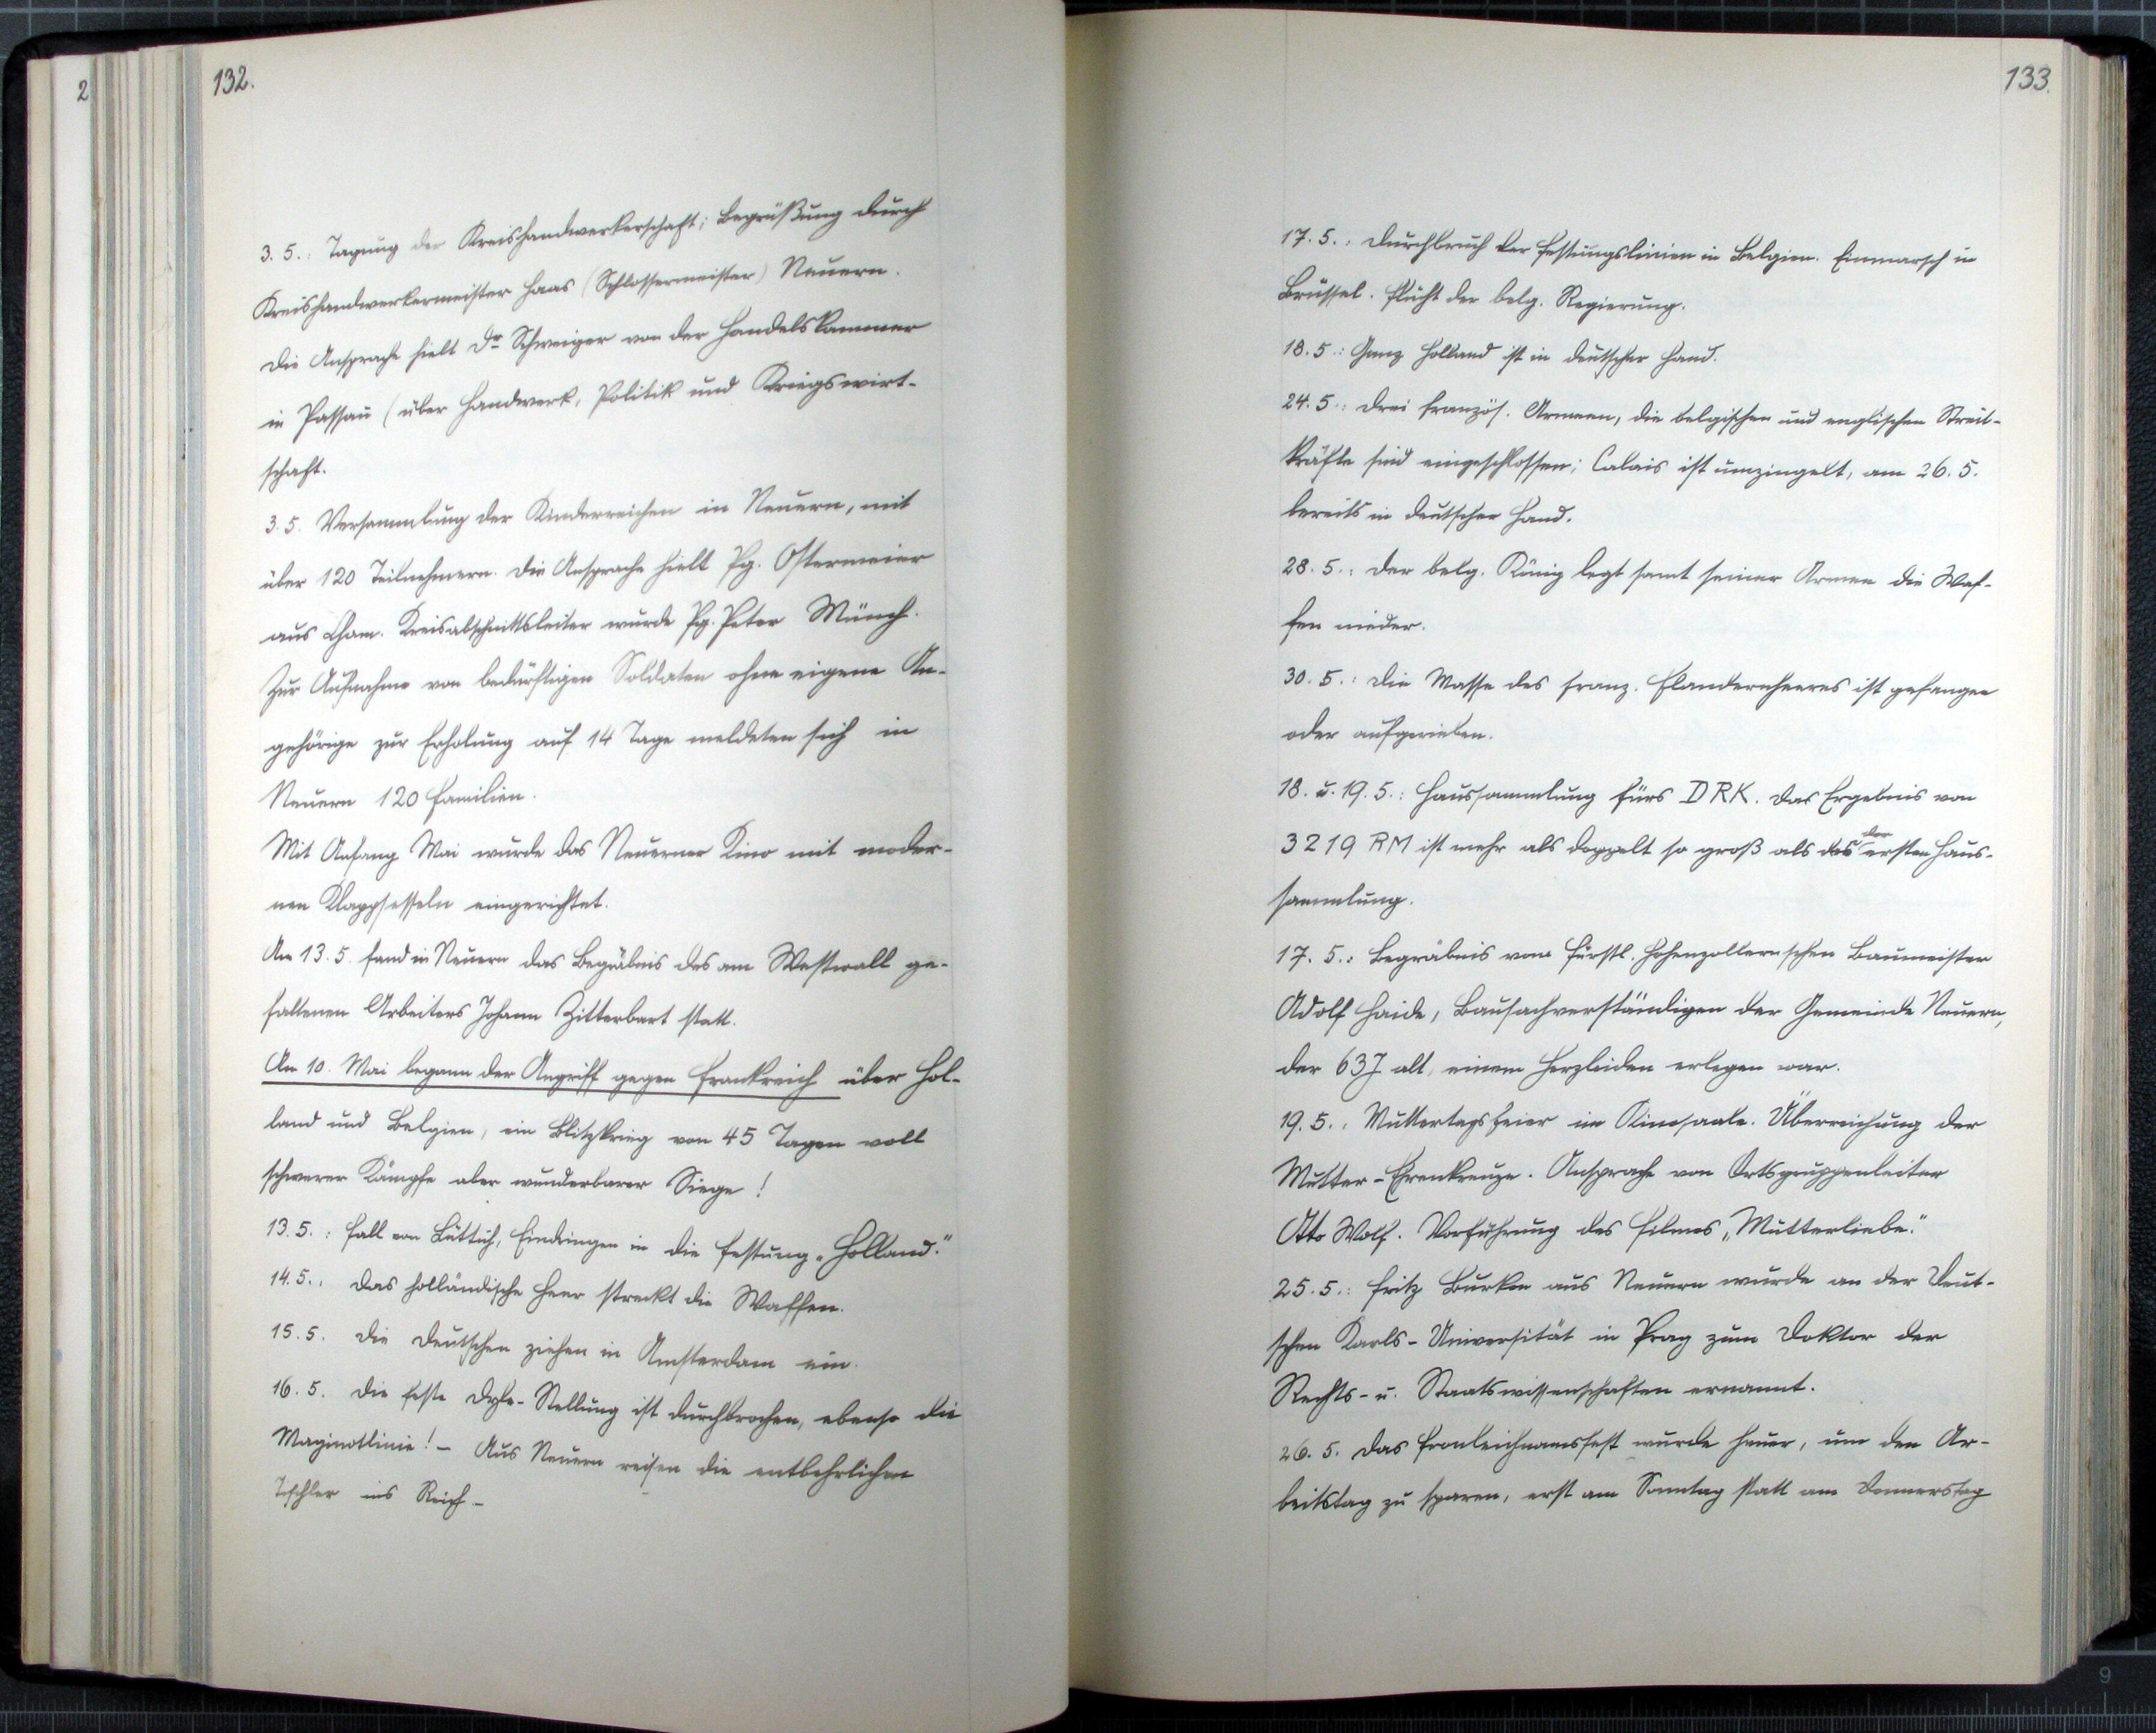 2
132.
3. 5.: Tagung der Kreishandwerkerschaft; Begrüßung durch
Kreishandwerkermeister Haas (Schlossermeister) Neuern.
Die Ansprache hielt Dr Schweiger von der Handelskammer
in Passau (über Handwerk, Politik und Kriegswirt-
schaft.
3. 5. Versammlung der Kinderreichen in Neuern, mit
über 120 Teilnehmern. Die Ansprache hielt Pg. Ostermeier
aus Cham. Kreisabschnittsleiter wurde Pg. Peter Münch.
Zur Aufnahme von bedürftigen Soldaten ohne eigene An-
gehörige zur Erholung auf 14 Tage meldeten sich in
Neuern 120 Familien.
Mit Anfang Mai wurde das Neuerner Kino mit moder-
nen Klappsesseln eingerichtet.
Am 13. 5. fand in Neuern das Begräbnis des am Westwall ge-
fallenen Arbeiters Johann Zitterbart statt.
Am 10. Mai begann der Angriff gegen Frankreich über Hol-
land und Belgien, ein Blitzkrieg von 45 Tagen voll
schwerer Kämpfe aber wunderbarer Siege!
13. 5.: Fall von Lüttich, Eindringen in die Festung „Holland."
14. 5.: Das holländische Heer streckt die Waffen.
15. 5. Die Deutschen ziehen in Amsterdam ein.
16. 5. Die feste Dyle-Stellung ist durchbrochen, ebenso die
Maginotlinie! - Aus Neuern reisen die entbehrlichen
Tischler ins Reich -
133.
17. 5.: Durchbruch der Festungslinien in Belgien. Einmarsch in
Brüssel. Flucht der belg. Regierung.
18. 5.: Ganz Holland ist in deutscher Hand.
24. 5.: Drei französ. Armeen, die belgischen und englischen Streit-
kräfte sind eingeschlossen; Calais ist umzingelt, am 26. 5.
bereits in deutscher Hand.
28. 5.: Der belg. König legt samt seiner Armee die Waf-
fen nieder.
30. 5.: Die Masse des franz. Flandernheeres ist gefangen
oder aufgerieben.
18. u. 19. 5.: Haussammlung fürs DRK. Das Ergebnis von
3219 RM ist mehr als doppelt so groß als das der ersten Haus-
sammlung.
17. 5.: Begräbnis vom Fürstl. Hohenzollernschen Baumeister
Adolf Haide, Bausachverständigen der Gemeinde Neuern,
der 63 J alt, einem Herzleiden erlegen war.
19. 5.: Muttertagsfeier im Kinosaale. Überreichung der
Mutter-Ehrenkreuze. Ansprache von Ortsgruppenleiter
Otto Wolf. Vorführung des Filmes „Mutterliebe."
25. 5.: Fritz Burkon aus Neuern wurde an der Deut-
schen Karls-Universität in Prag zum Doktor der
Rechts- u. Staatswissenschaften ernannt.
26. 5. Das Fronleichnamsfest wurde heuer, um den Ar-
beitstag zu sparen, erst am Sonntag statt am Donnerstag
9